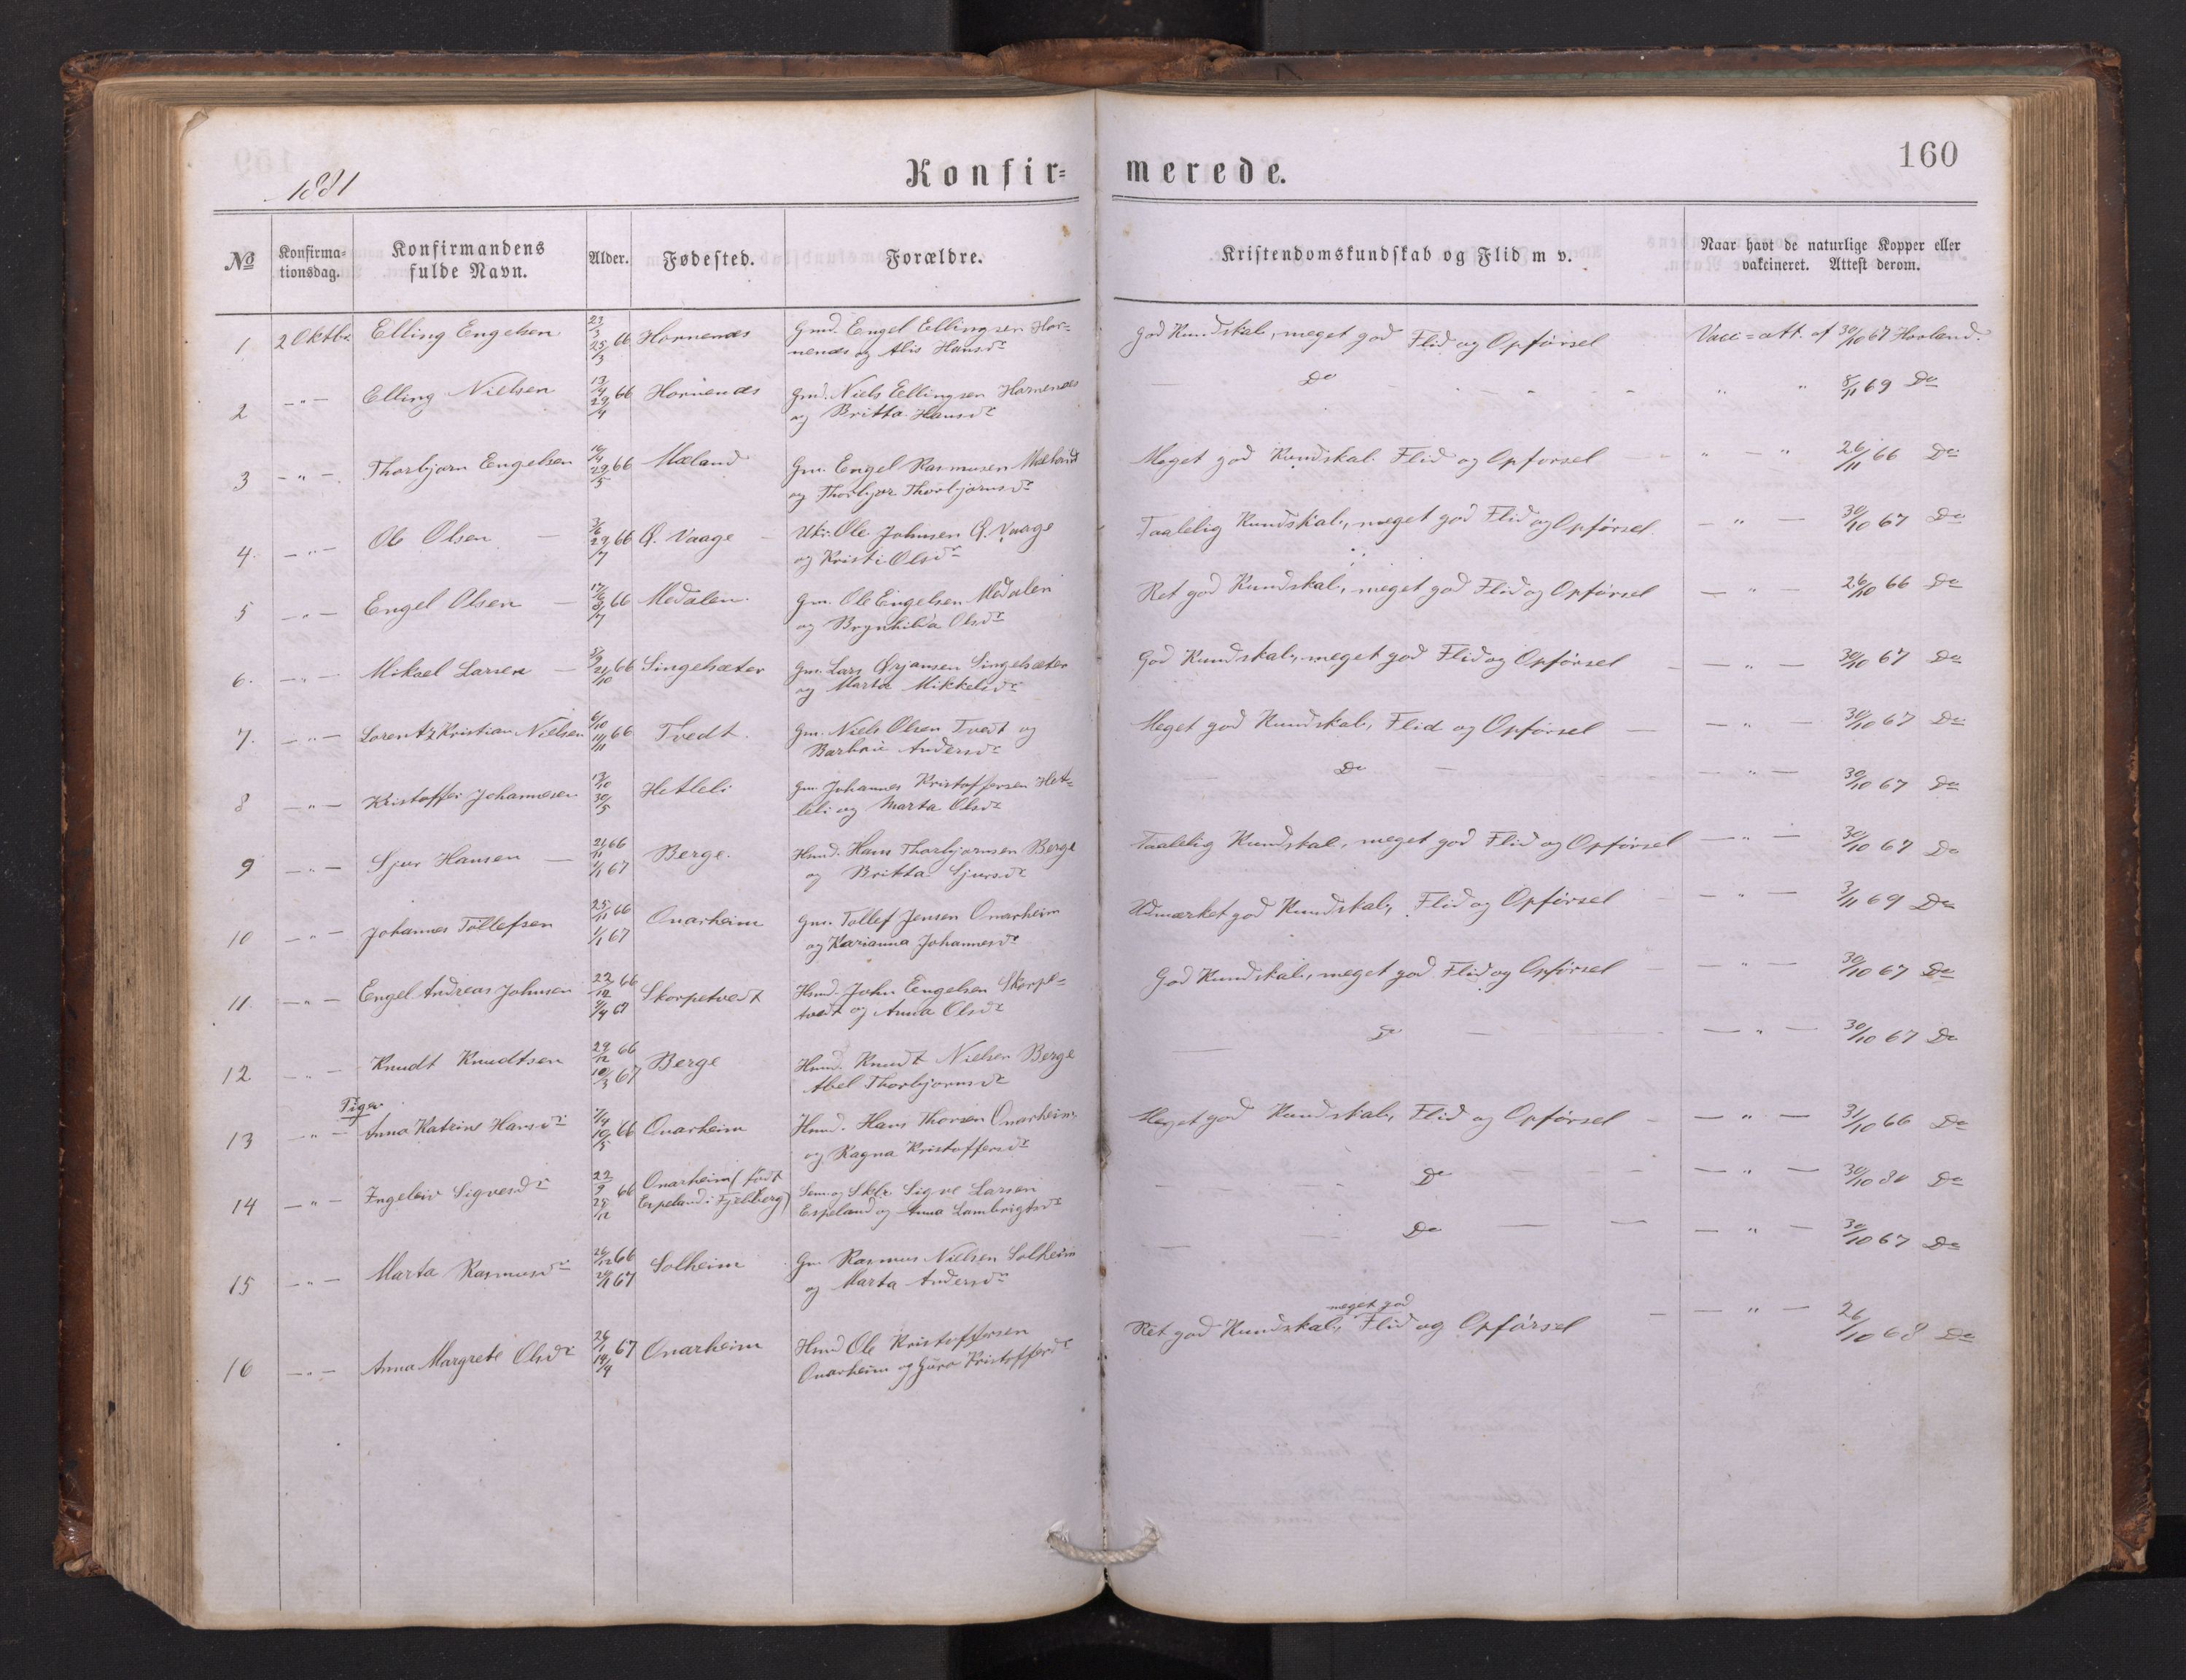 160
1881
Konfir=merede.
№ Konfirma=tionsdag. Konfirmandens fulde Navn. Alder. Fødested. Forældre. Kristendomskundskab og Flid m v. Naar havt de naturlige Kopper eller vakcineret. Attest derom.
1 2 Oktbr. Elling Engelsen 23/3 25/3 66 Hornenæs Gmd. Engel Ellingsen Hor=
nenæs og Alis Hansdr
God Kundskab, meget god Flid og Opførsel Vacc=att. af 30/10 67 Hovland.
2 -"- Elling Nielsen 13/4 29/4 66 Hornenæs Gmd. Niels Ellingsen Hornenæs
og Britta Hansdr
— Do - - - " " 8/11 69 Do
3 -"- Thorbjørn Engelsen 16/4 29/5 66 Mæland Gm. Engel Rasmusen Mæland
og Thorbjør Thorbjørnsdr
Meget god Kundskab Flid og Opførsel " - " 26/11 66 Do
4. -"- Ole Olsen 3/6 29/7 66 Ø. Vaage Ole Johnsen Ø. Vaage
og Kristi Olsdr
Taalelig Kundskab, meget god Flid og Opførsel - " - 30/10 67 Do
5 -"- Engel Olsen — 17/6 8/7 66 Medalen Gm. Ole Engelsen Medalen
og Brynhilda Olsdr
Ret god Kundskab, meget god Flid og Opførsel - " - 26/10 66 Do
6. -"- Mikael Larsen — 21/10 66 Singelsæter Gm. Lars Ørjansen Singelsæter
og Marta Mikkelsdr
God Kundskab, meget god Flid og Opførsel - " - 30/10 67 Do
7. -"- Lorentz Kristian Nielsen 6/10 11/11 66 Tvedt. Gm. Niels Olsen Tvedt og
Andersdr
Meget god Kundskab, Flid og Opførsel — " - 30/10 67 Do
8 -"- Kristoffer Johannesen 17/10 30/5 Hetleli Gm. Johannes Kristoffersen Het=
leli og Marta Olsdr
— Do — " - 30/10 67 Do
9 -"- Sjur Hansen — 21/11 66 1/1 67 Berge. Hmd. Hans Thorbjørnsen Berge
og Britta Sjursdr
Taalelig Kundskab, meget god Flid og Opførsel — " - 30/10 67 Do
10 -"- Johannes Tollefsen 25/11 66 1/1 67 Onarheim Gm. Tollef Jensen Onarheim
og Karianna Johannesdr
Udmærket god Kundskab, Flid og Opførsel - " - 3/11 69 Do
11. -"- Engel Andreas Johnsen 22/12 66 67 Skorpetvedt Hmd. John Engelsen Skorpe=
tvedt og Anna Olsdr
God Kundskab, meget god Flid og Opførsel - " - 30/10 67 Do
12 -"- Knudt Knudtsen 29/12 66 10/3 67 Berge Hmd. Knudt Nielsen Berge
Abel Thorbjørnsdr
— Do — - " - 30/10 67 Do
Piger
13 -"- Anna Katrine Hansdr 10/5 66 Onarheim Hmd. Hans Thorsen Onarheim
og Ragna Kristoffersdr
Meget god Kundskab, Flid og Opførsel - " - 31/10 66 Do
14 -"- Ingeleiv Sigvesdr 22/9 28/12 66 Onarheim (født
Espeland i Fjelberg) Sem. og Sklr. Sigve Larsen
Espeland og Anna Lambrigtsdr
- Do - - " — 30/10 80 Do
15 -"- Marta Rasmusdr 26/12 66 67 Solheim Gm Rasmus Nielsen Solheim
og Marta Andersdr
— Do — — " - 30/10 67 Do
16 -"- Anna Margrete Olsdr 26/1 14/4 67 Onarheim Hmd Ole Kristoffersen
Onarheim og Guro Kristoffersdr
meget god
Ret god Kundskab, Flid og Opførsel — " - 26/10 68 Do